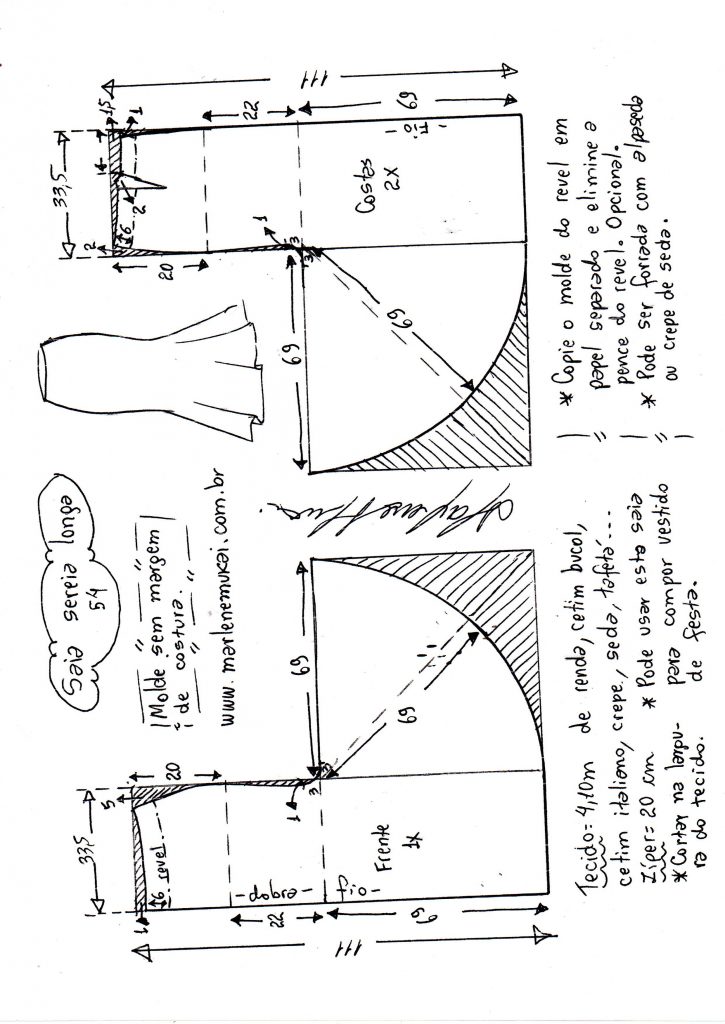 Saia sereia longa
54
Molde sem margem
de costura.
www.marlenemukai.com.br
33,5
5
20
1
6 revel
dobra
fio
Frente
1X
22
69
111
1
3
69
69
33,5
2
20
1,5
1
4
2
6
1
3
22
69
111
Costas
2X
Fio
69
69
Tecido = 4,10m de renda, cetim bucol,
cetim italiano, crepe, seda, tafetá...
Zíper = 20 cm
* Cortar na largu-
ra do tecido.
* Pode usar esta saia
para compor vestido
de festa.
* Copie o molde do revel em
papel separado e elimine a
pence do revel. Opcional.
* Pode ser forrada com alpaseda
ou crepe de seda.